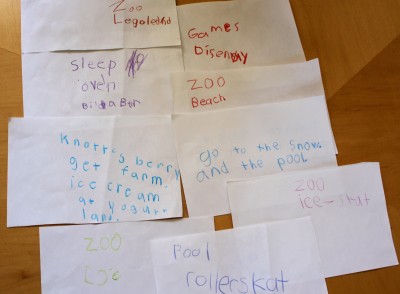 Zoo
Legoleand
Games
Disenay
sleep
oven
Bild a Bar
ZOO
Beach
Knott's berry
get farm.
ice cream
at yogurt
land.
go to the snow
and the pool
ZOO
ice-skat
ZOO
Pool
rollerskat